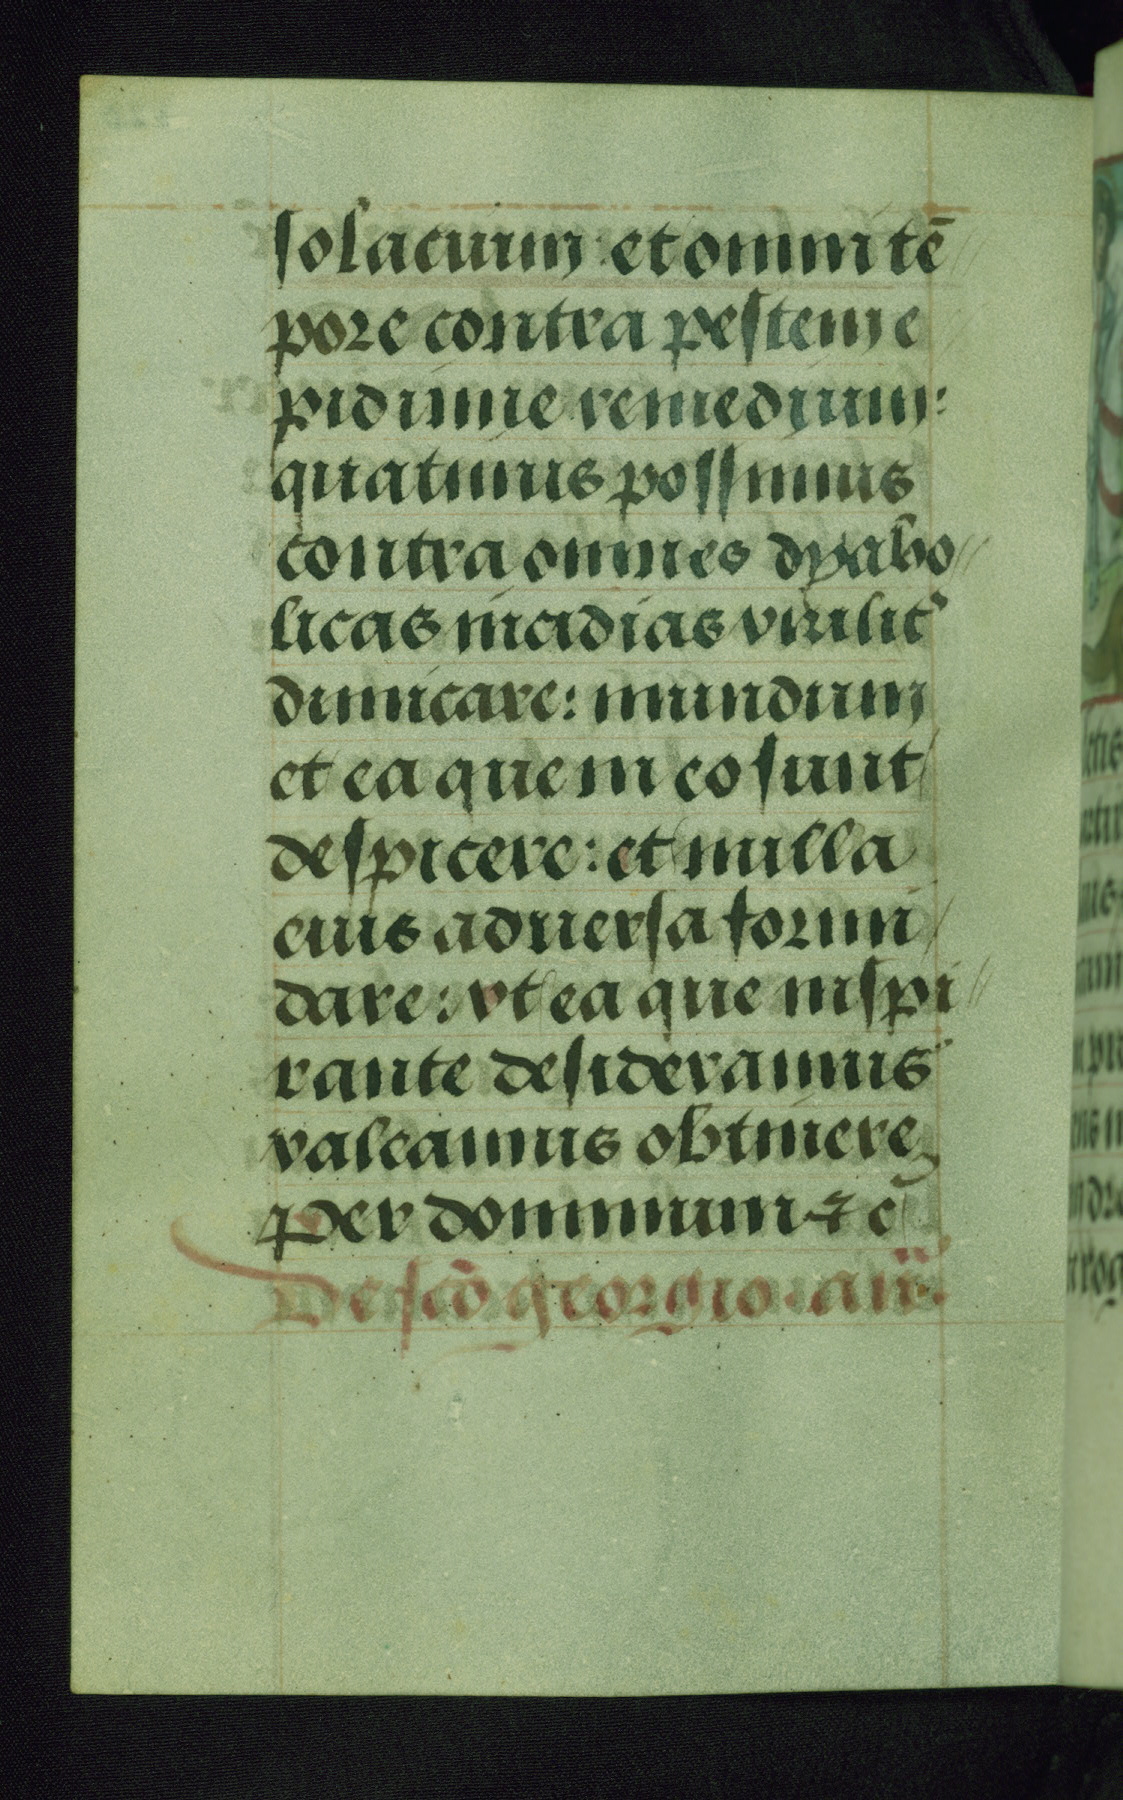 solacium: et omni tē
pore contra pestem e
pidimie remedium:
quatinus possimus
contra omnes dyabo
licas insidias virilit᾽
dimicare: mundum
et ea que in eo sunt
despicere: et nulla
eius aduersa formi
dare: vt ea que inspi
rante desideramus
valeamus obtinere
per dominum ⁊ c̄
De scō georgio. añ.